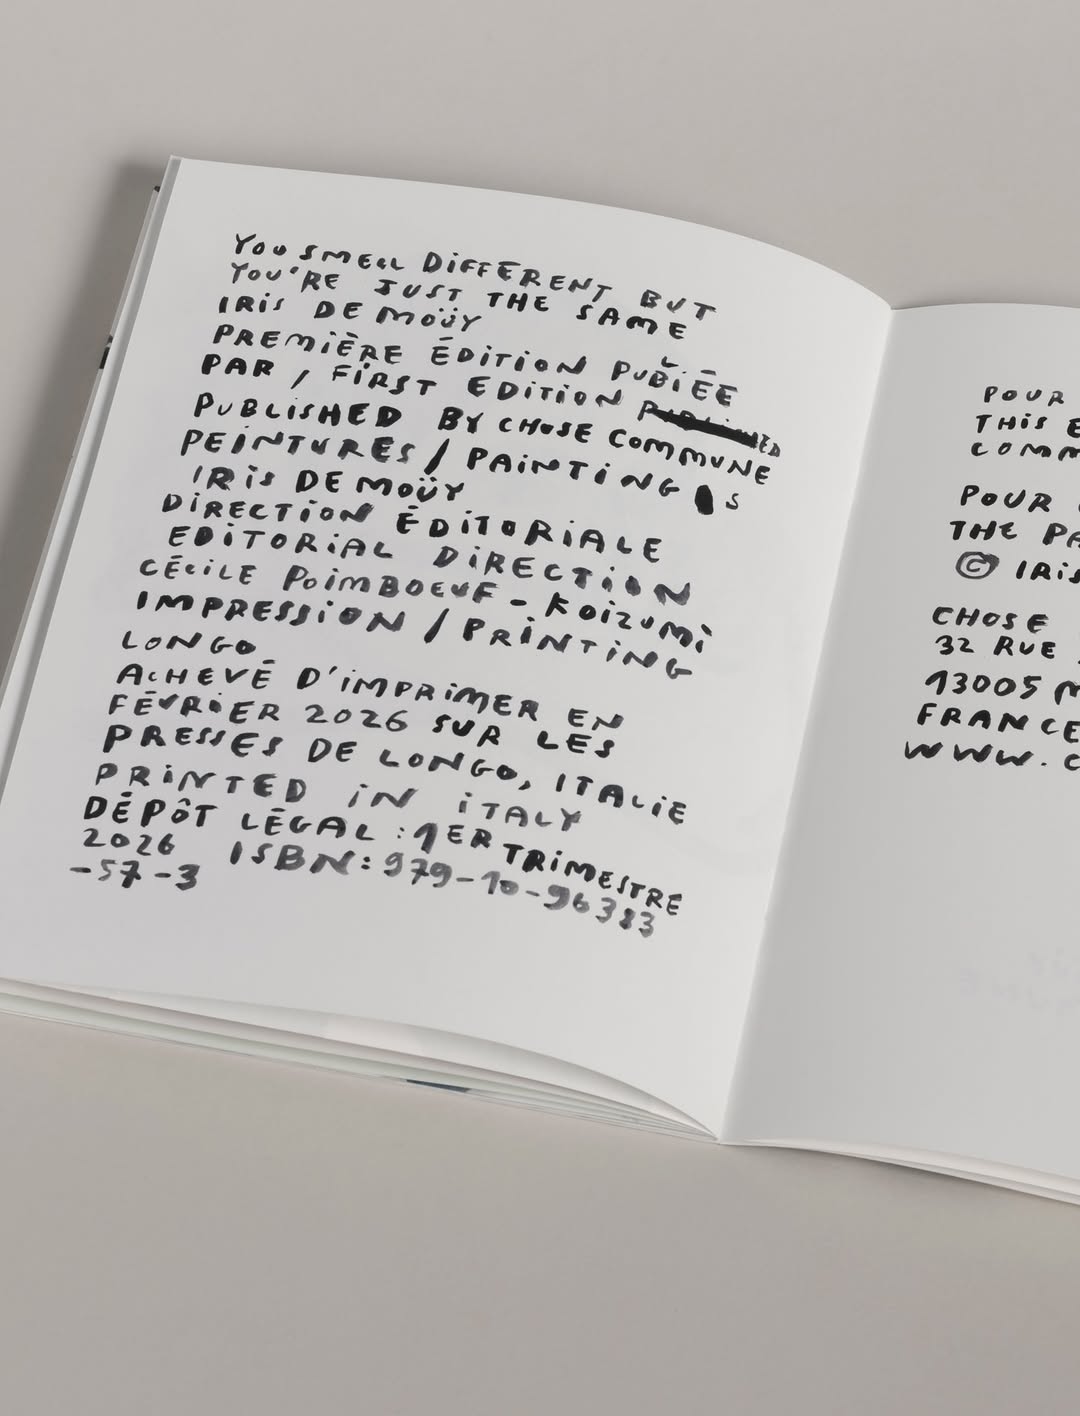 YOU SMELL DIFFERENT BUT
YOU'RE JUST THE SAME
IRIS DE MOÜY
PREMIÈRE ÉDITION PUBLIÉE
PAR / FIRST EDITION
PUBLISHED BY CHOSE COMMUNE
PEINTURES / PAINTINGS
IRIS DE MOÜY
DIRECTION ÉDITORIALE
EDITORIAL DIRECTION
CÉCILE POIMBOEUF-KOIZUMI
IMPRESSION / PRINTING
LONGO
ACHEVÉ D'IMPRIMER EN
FÉVRIER 2026 SUR LES
PRESSES DE LONGO, ITALIE
PRINTED IN ITALY
DÉPÔT LÉGAL : 1ER TRIMESTRE
2026 ISBN: 979-10-96383
-57-3
POUR
THIS
POUR
THE
© IRIS
CHOSE
32 RUE
13005
FRANCE
WWW.